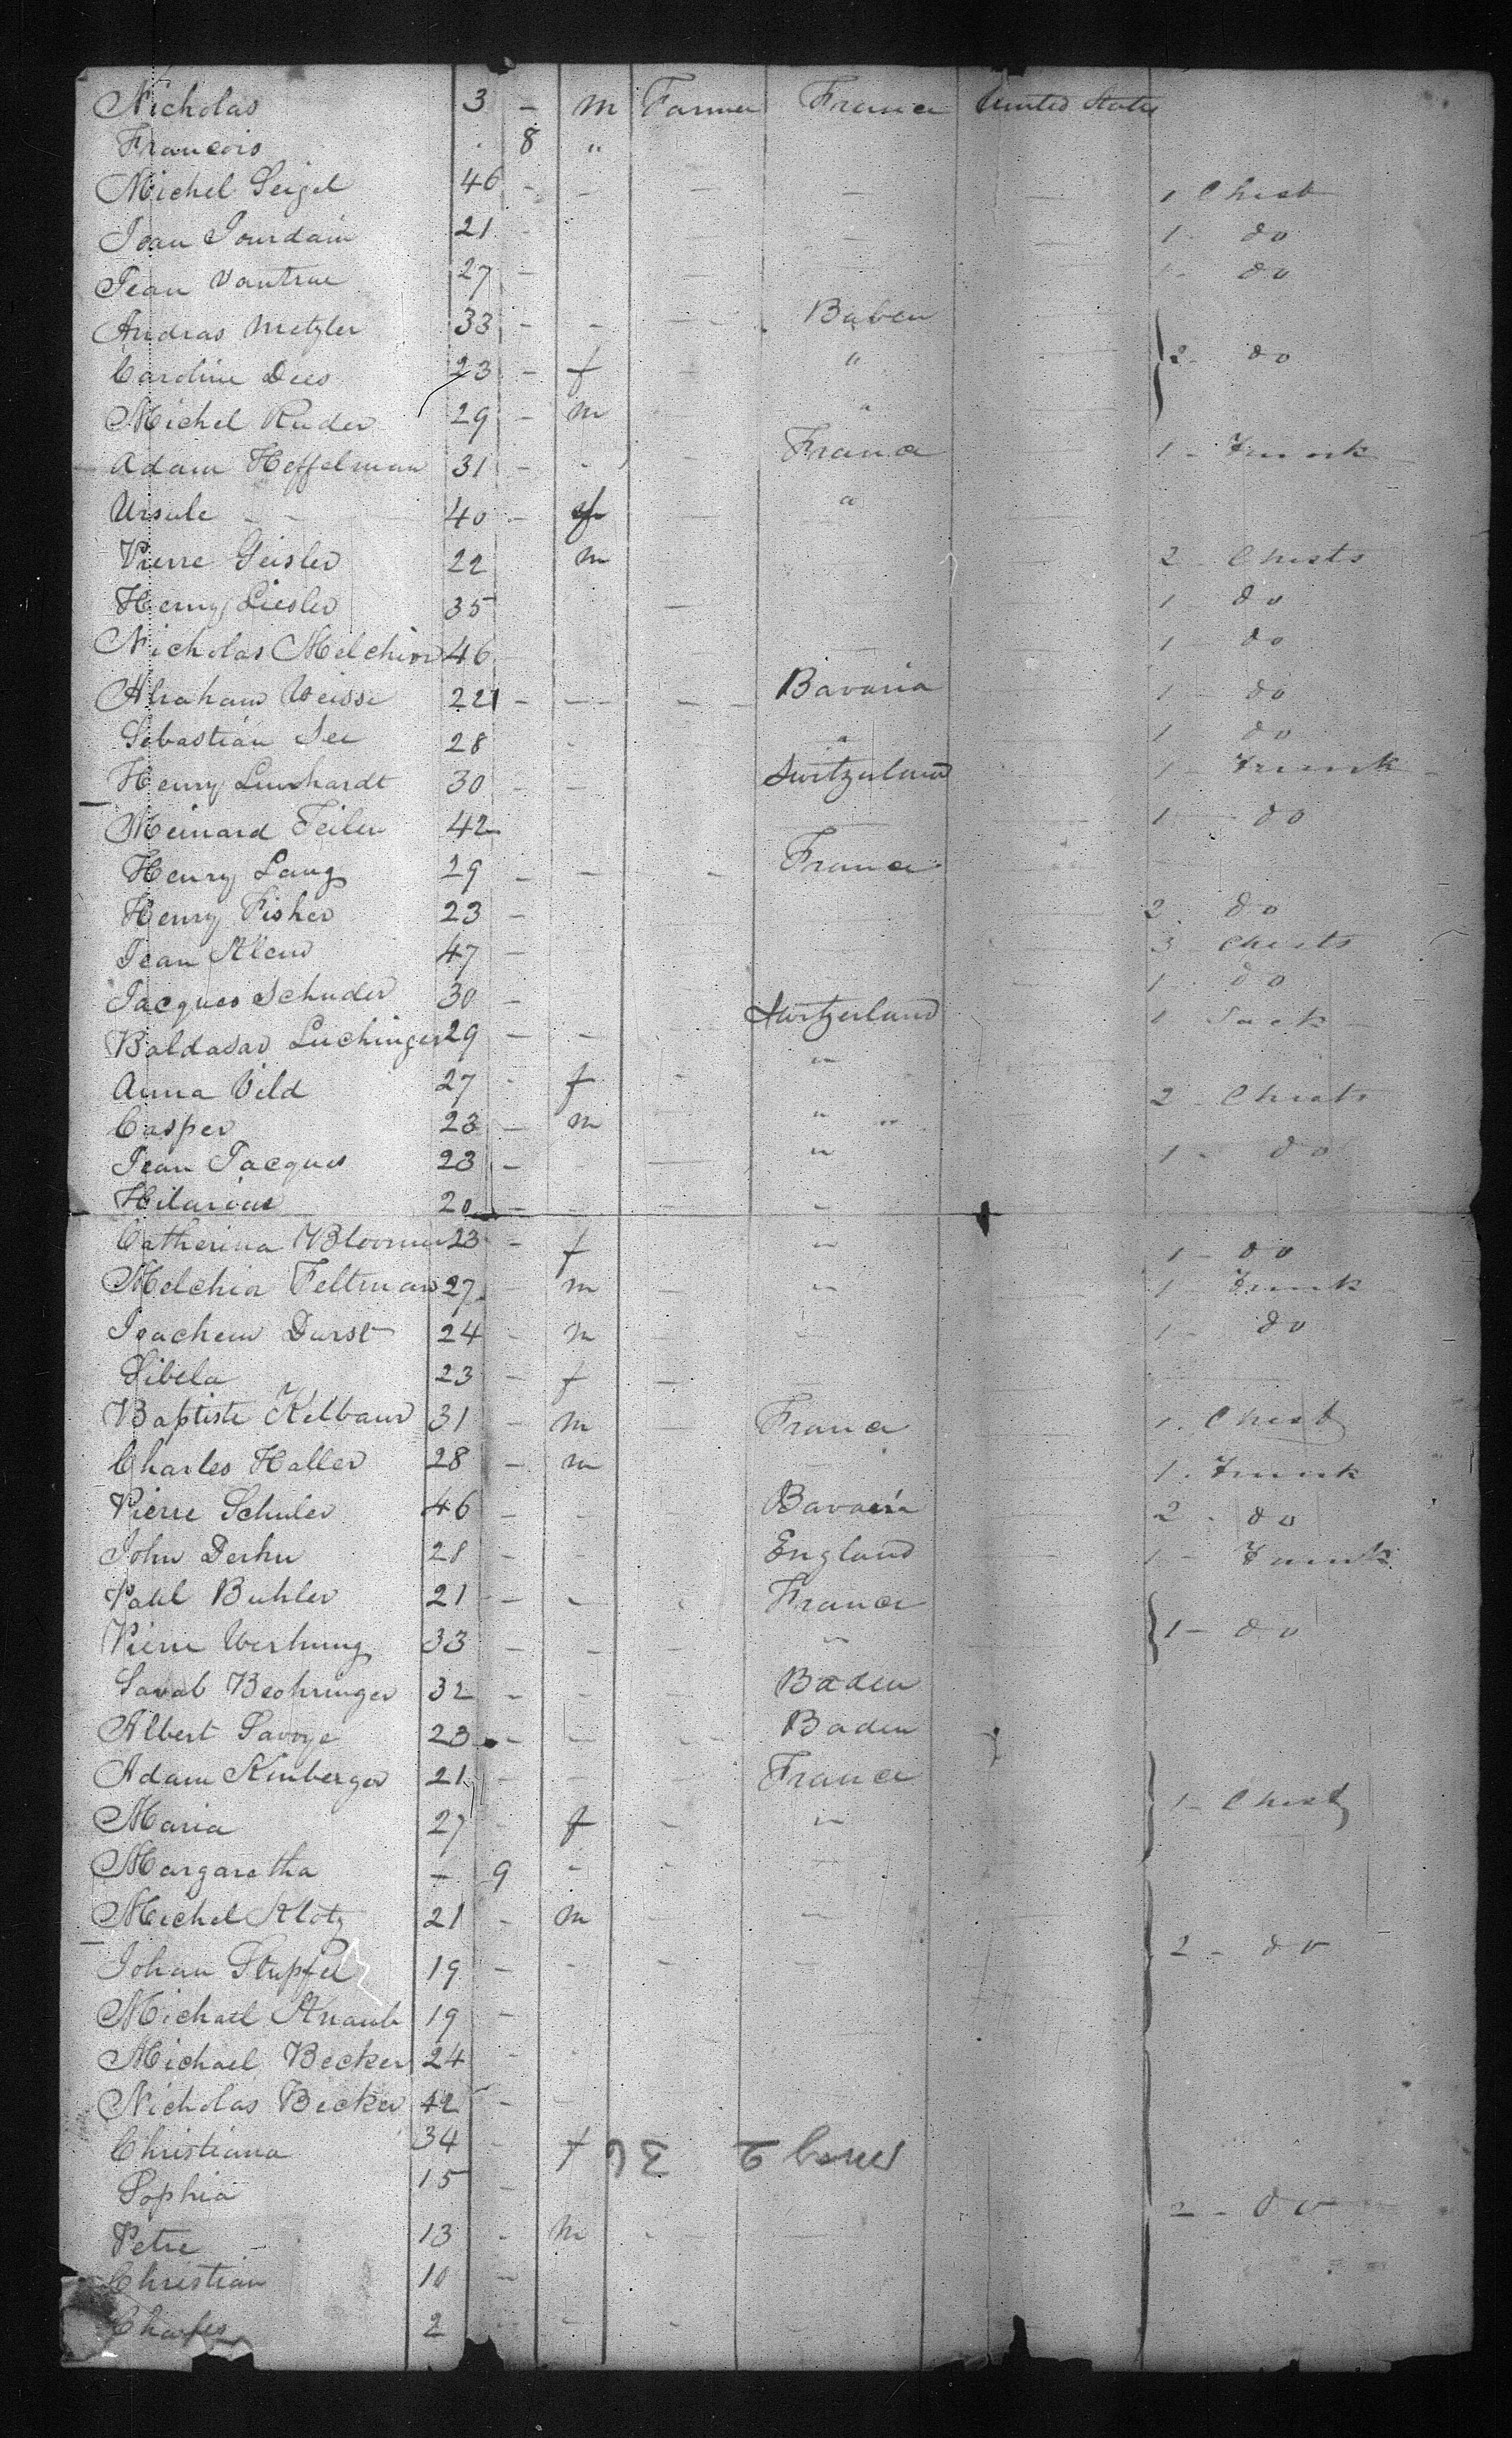 Nicholas 3 - m Farmer France United States
Francois . 8 "
Michel Seigel 46 - - - - 1 Chest
Jean Jourdain 21 - - 1 - do
Jean Vautrue 27 - - 1 - do
Andras Metzler 33 - - - Baben
Caroline Dees 23 - f - " 2 - do
Michel Ruder 29 - m - "
Adam Heffelman 31 - - - France 1 - Trunk
Ursule - - 40 - f - "
Pierre Geisler 22 m 2 Chests
Henry Liesler 35 - 1 do
Nicholas Melchior 46 1 do
Abraham Weisse 22 - - - Bavaria 1 do
Sebastian See 28 - " 1 do
Henry Linhardt 30 - - Switzerland 1 - Trunk
Meinard Feiler 42 1 - do
Henry Lang 29 - - - France
Henry Fisher 23 - 2 . do
Jean Klein 47 - 3 - Chests
Jacques Schuder 30 - 1 . do
Baldasar Luchinger 29 - - Switzerland 1 Sack
Anna Vild 27 - f - "
Casper 23 - m " 2 - Chests
Jean Jacques 23 - - " 1 - do
Hilarious 20 - - - -
Catherina Bloomer 23 - f " 1 - do
Melchior Feltman 27 - m - " 1 - Trunk
Joachem Durst 24 - m - - 1 - do
Sibela 23 - f -
Baptiste Kelbaur 31 - m - France 1 . Chest
Charles Haller 28 - m - 1 . Trunk
Pierre Schuler 46 - - Bavaria 2 - do
John Derhn 28 - - England 1 - Trunk
Paul Buhler 21 - - France
Pierre Werhung 33 - - " 1 - do
Beohringer 32 - - - Baden
Albert Savoye 23 - - - Baden
Adam Kinberger 21 - - - France
Maria 27 - f - " 1 - Chest
Margaretha - 9 - - -
Michel Klotz 21 - m - -
Johan Stupfel 19 - - - - 2 - do
Michael Knaub 19 -
Michael Becker 24 - -
Nicholas Becker 42 - -
Christiana 34 - f 36
Sophia 15 - 2 - do
Petre 13 - m - -
Christian 10 -
Charles 2 - - -